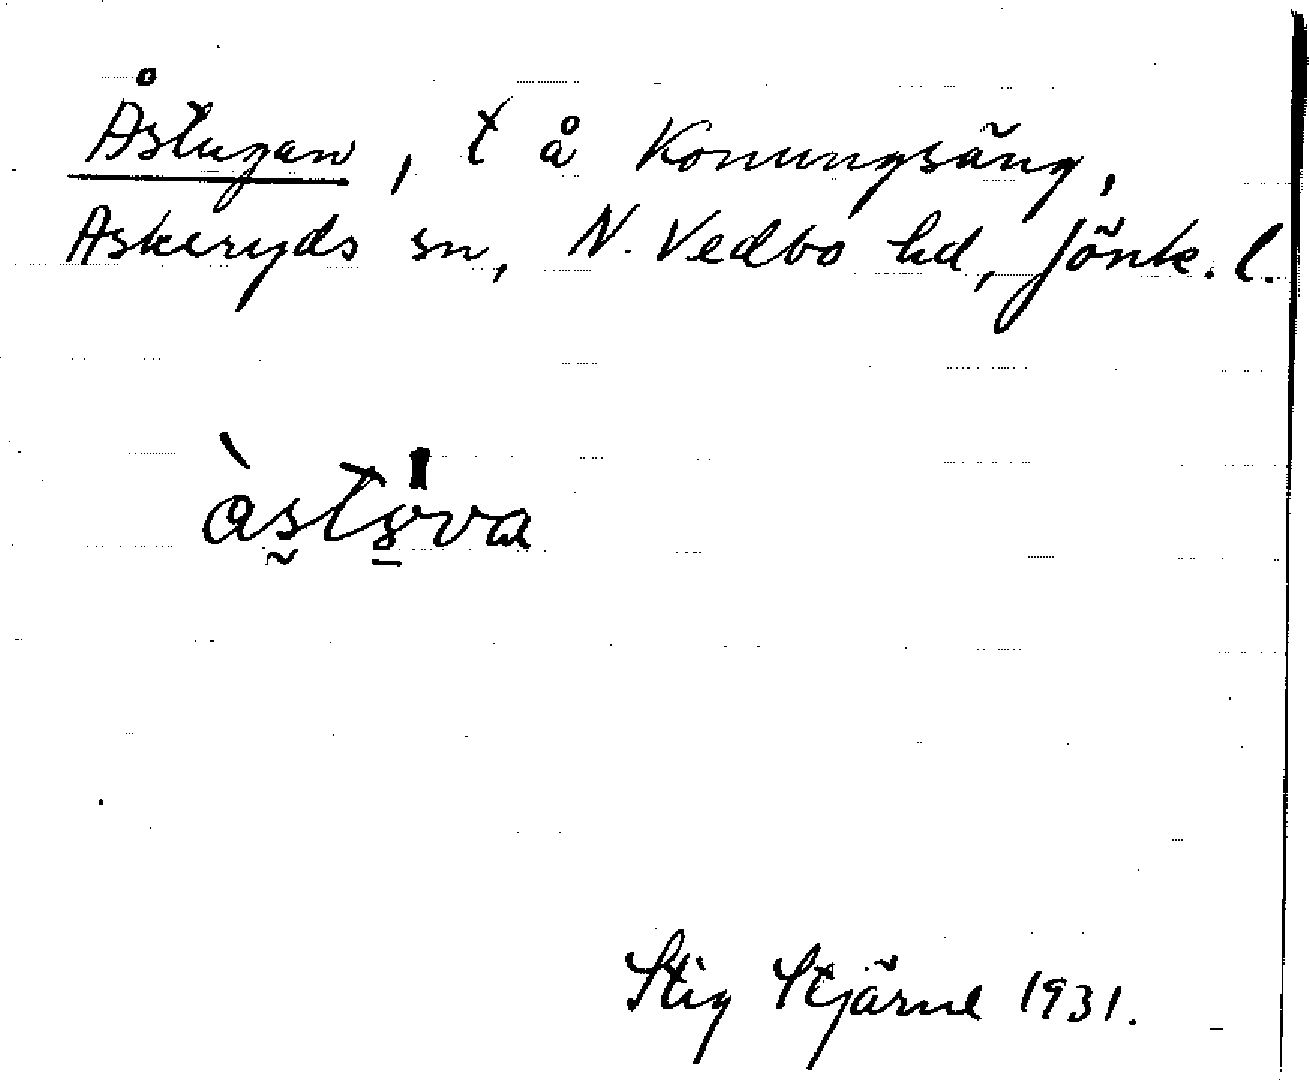 Åstugan, t å Konungsäng,
Askeryds sn, N. Vedbo hd, Jönk. l.
Stig Stjärne 1931.